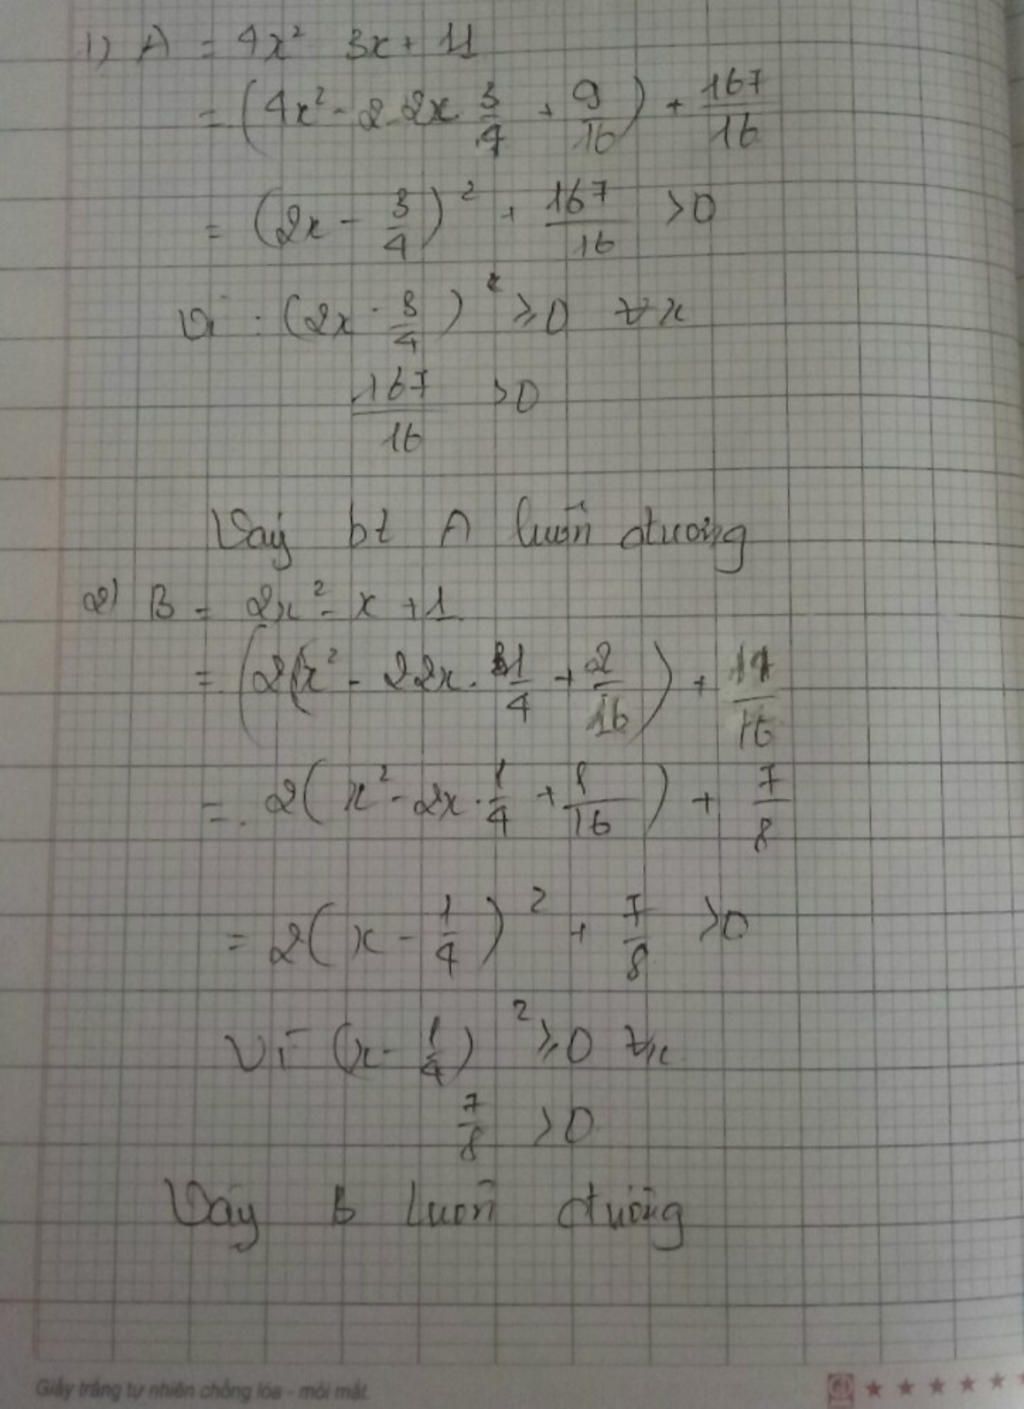 1) A = 4x² 3x + 11
= (4x² - 2.2x.3/4 + 9/16) + 167/16
= (2x - 3/4)² + 167/16 > 0
Vì : (2x - 3/4)² ≥ 0 ∀x
167/16 > 0
Vậy bt A luôn dương
2) B = 2x² - x + 1
= (2(x² - 2.2x.1/4 + 2/16) + 14/16
= 2(x² - 2x.1/4 + 1/16) + 7/8
= 2(x - 1/4)² + 7/8 > 0
Vì (x - 1/4)² ≥ 0 ∀x
7/8 > 0
Vậy B luôn dương
Giấy trắng tự nhiên chống lóa - mỏi mắt